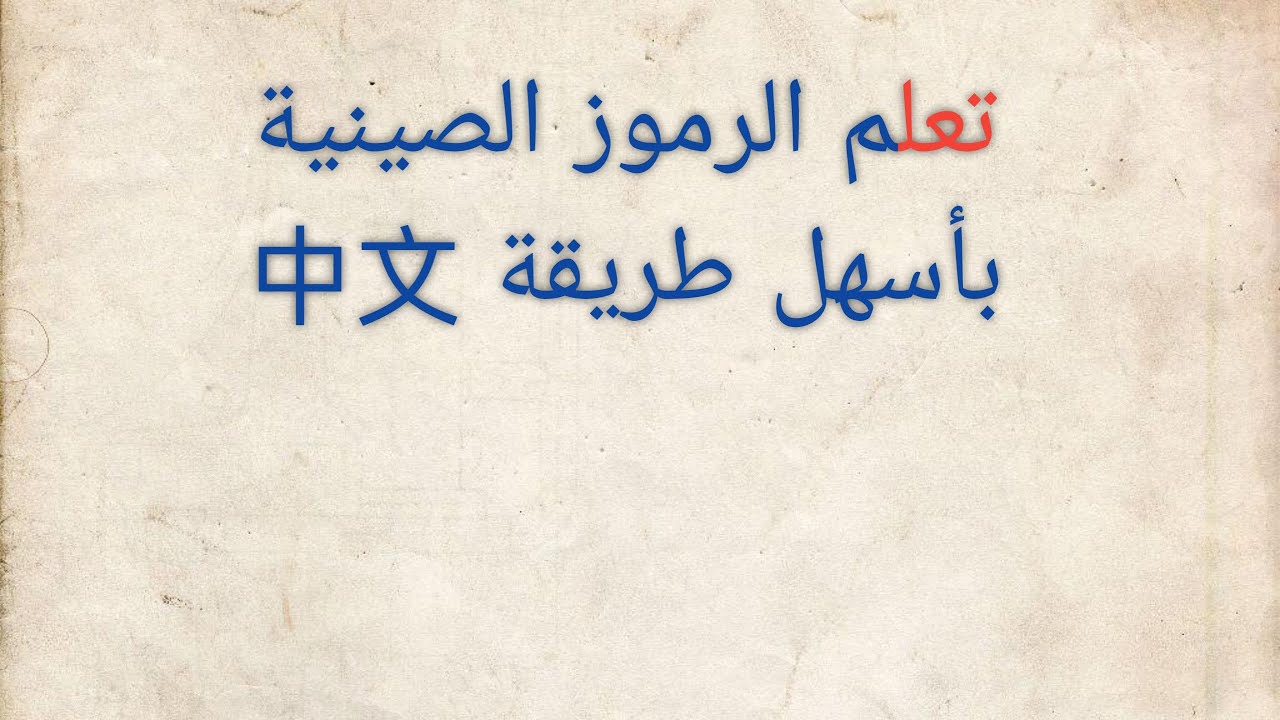 تعلم الرموز الصينية
بأسهل طريقة 中文